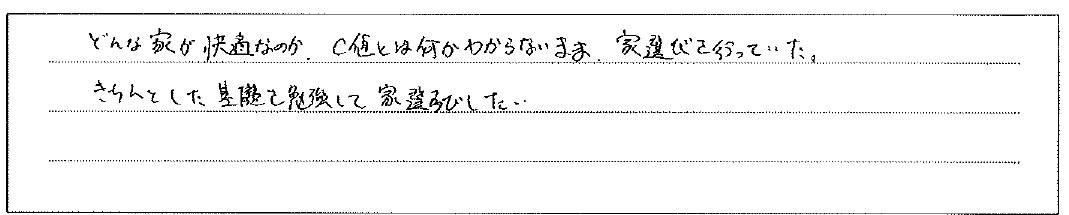 どんな家が快適なのか、C値とは何かわからないまま、家選びを行っていた。
きちんとした基礎を勉強して家選びしたい